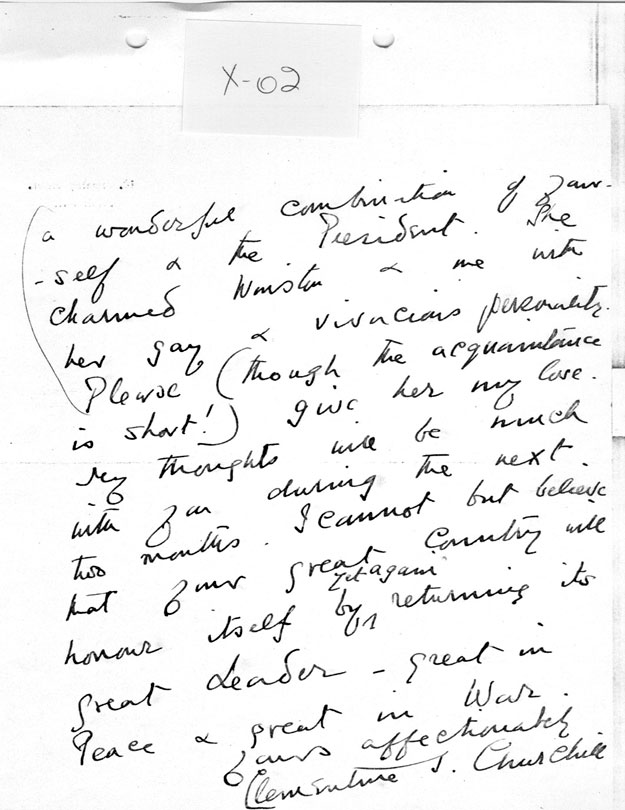 X-02
a wonderful combination of your-
-self & the President. She
charmed Winston & me with
her gay & vivacious personality.
Please (though the acquaintance
is short!) give her my love.
My thoughts will be much
with you during the next
two months. I cannot but believe
that your great Country will
yet again
honour itself by returning its
great Leader – great in
Peace & great in War.
Yours affectionately
Clementine S. Churchill